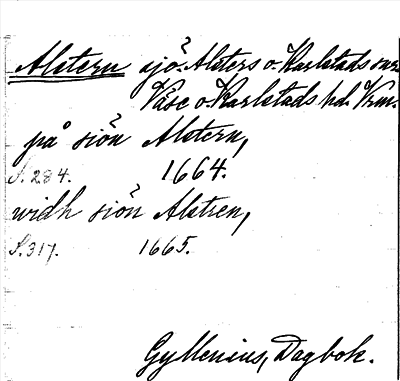 Alstern sjö. Alsters o. Karlstads snr
Väse o. Karlstads hd. Vrm.
på siön Alstern,
S. 284. 1664.
widh siön Alstren,
S. 317. 1665.
Gyllenius, Dagbok.